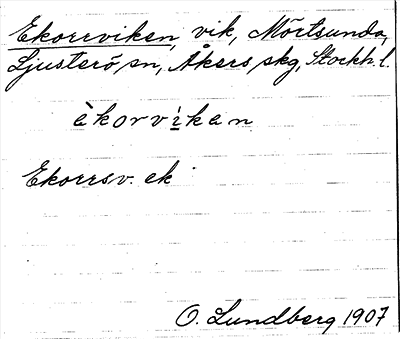 Ekorrviken, vik, Mörtsunda,
Ljusterö sn, Åkers skg, Stockh. l.
èkorvìkan
Ekorrsv. ek
O. Lundberg 1907